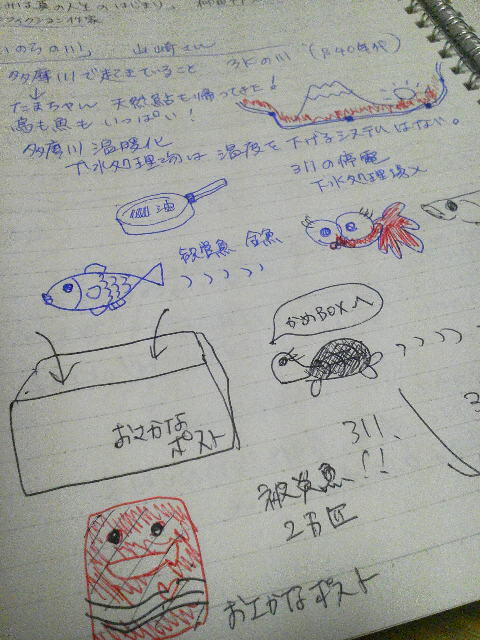 いのちの川、 山崎さん
多摩川で起きていること 3Kの川 (S40年代)
たまちゃん 天然鮎も帰ってきた!
鳥も魚もいっぱい!
多摩川 温暖化
下水処理場は温度を下げるシステムはない。
311の停電
下水処理場×
油
観賞魚 金魚
かめBOXへ
おさかな
ポスト
311、
被災魚!!
2万匹
おさかなポスト